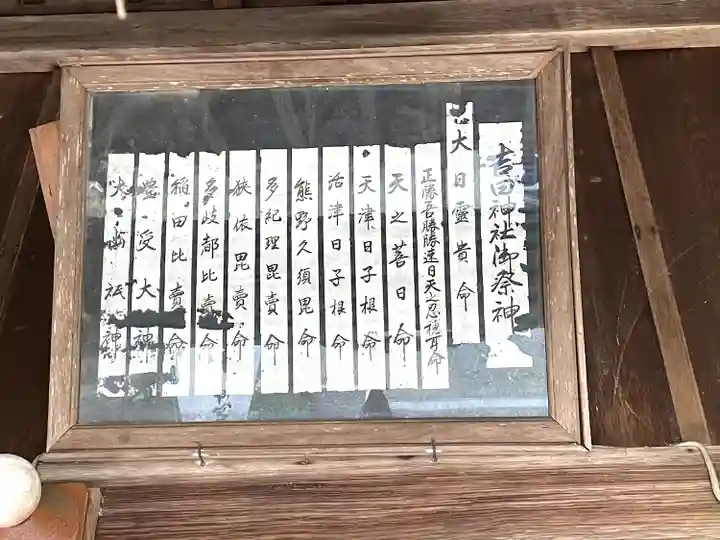 吉田神社御祭神
大日霊貴命
正勝吾勝勝速日天之忍穂耳命
天之菩日命
天津日子根命
活津日子根命
熊野久須毘命
多紀理毘賣命
狭依毘賣命
多岐都比賣命
稲田比賣命
豊受大神
大山祇神